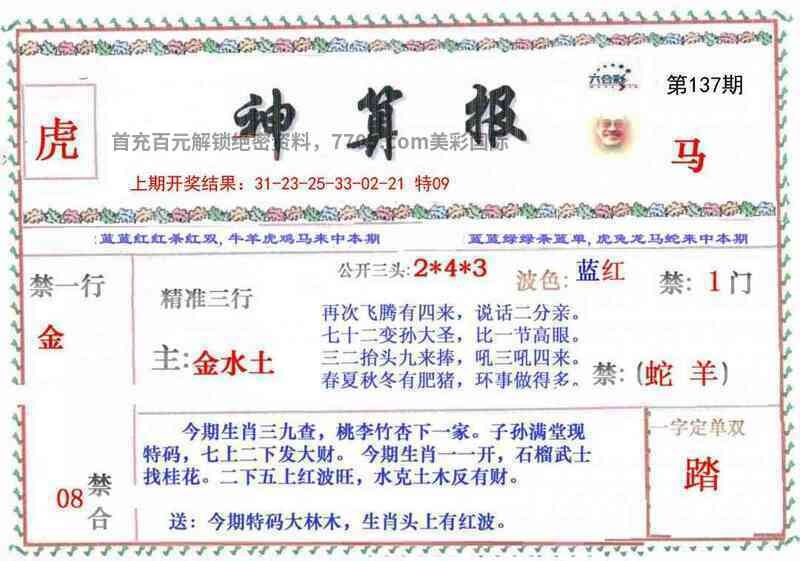 神算报
六合彩
第137期
虎
马
首充百元解锁绝密资料，
com美彩国际
上期开奖结果：31-23-25-33-02-21 特09
蓝蓝红红杀红双，牛羊虎鸡马来中本期
蓝蓝绿绿杀蓝单，虎兔龙马蛇来中本期
禁一行
金
精准三行
主：金水土
公开三头：2*4*3
波色：蓝红
禁：1门
再次飞腾有四来，说话二分亲。
七十二变孙大圣，比一节高眼。
三二抬头九来捧，吼三吼四来。
春夏秋冬有肥猪，环事做得多。
禁：(蛇 羊)
08
禁合
今期生肖三九查，桃李竹杏下一家。子孙满堂现
特码，七上二下发大财。 今期生肖一一开，石榴武士
找桂花。二下五上红波旺，水克土木反有财。
送：今期特码大林木，生肖头上有红波。
一字定单双
踏